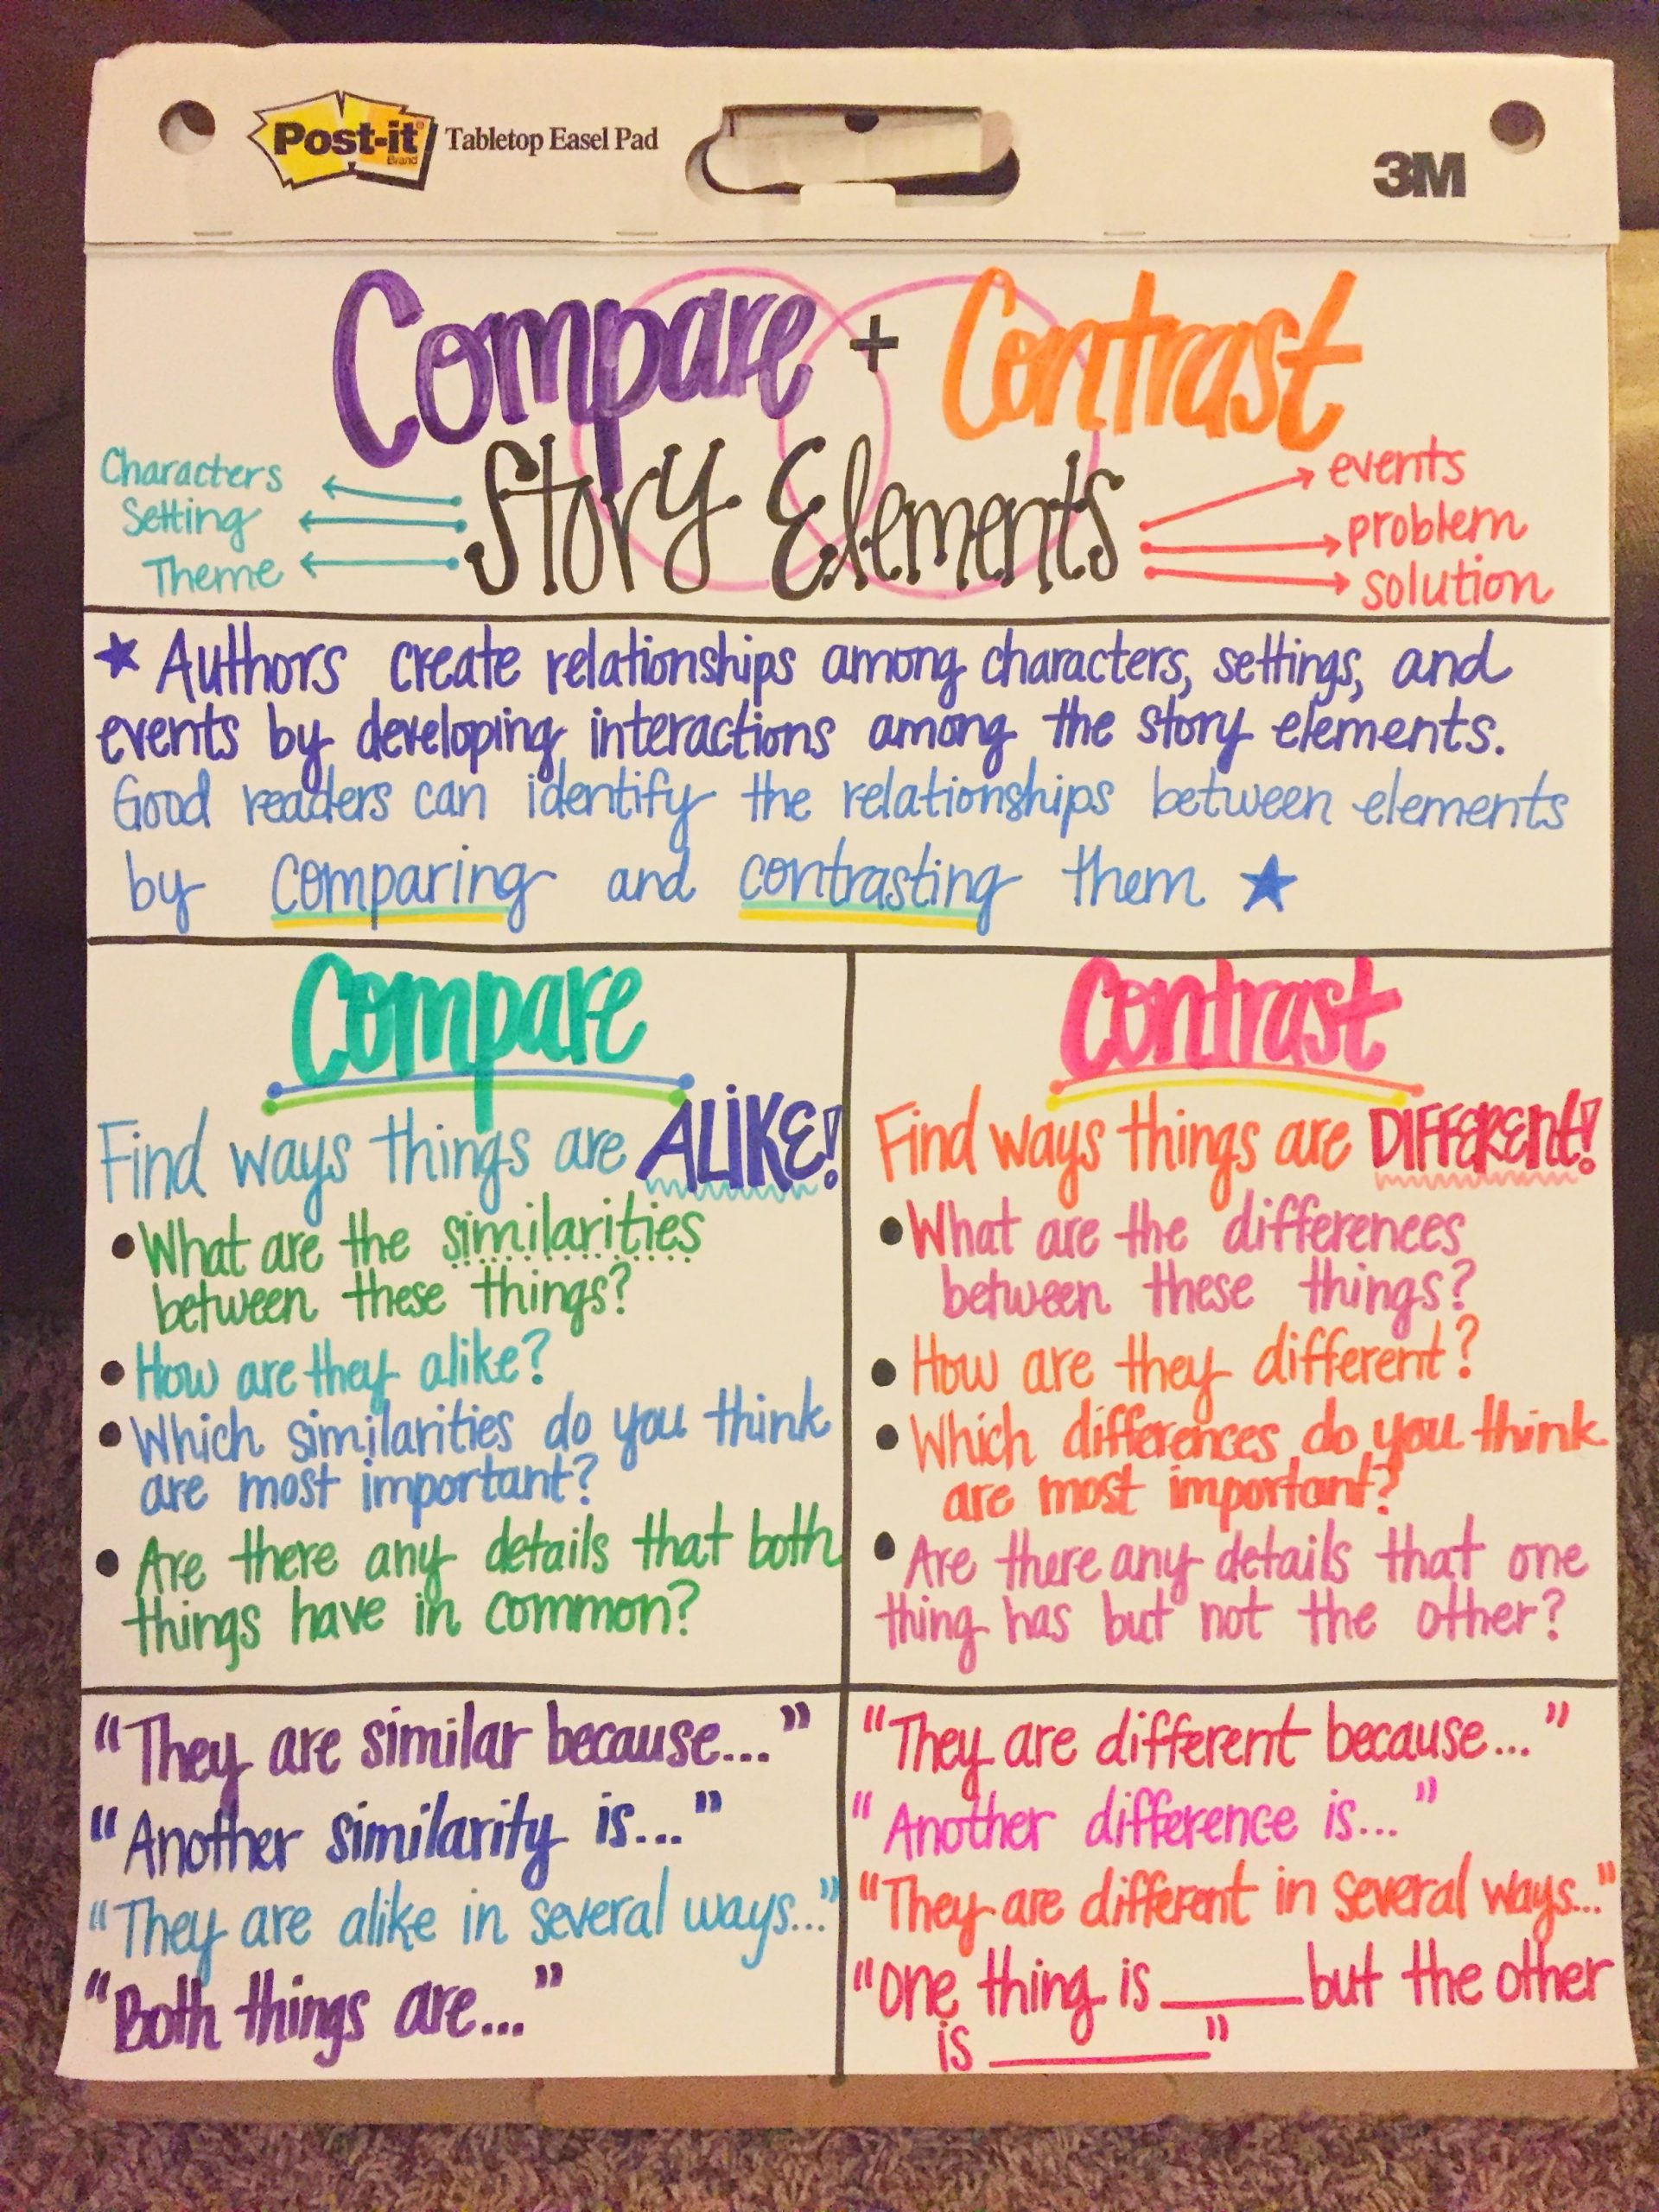 Post-it® Tabletop Easel Pad
Brand
3M
Compare + Contrast
Story Elements
Characters
Setting
Theme
events
problem
solution
★ Authors create relationships among characters, settings, and
events by developing interactions among the story elements.
Good readers can identify the relationships between elements
by comparing and contrasting them. ★
Compare
Find ways things are ALIKE!
• What are the similarities
between these things?
• How are they alike?
• Which similarities do you think
are most important?
• Are there any details that both
things have in common?
Contrast
Find ways things are DIFFERENT!
• What are the differences
between these things?
• How are they different?
• Which differences do you think
are most important?
• Are there any details that one
thing has but not the other?
"They are similar because..."
"Another similarity is..."
"They are alike in several ways..."
"Both things are..."
"They are different because..."
"Another difference is..."
"They are different in several ways..."
"One thing is _____ but the other
is ________"